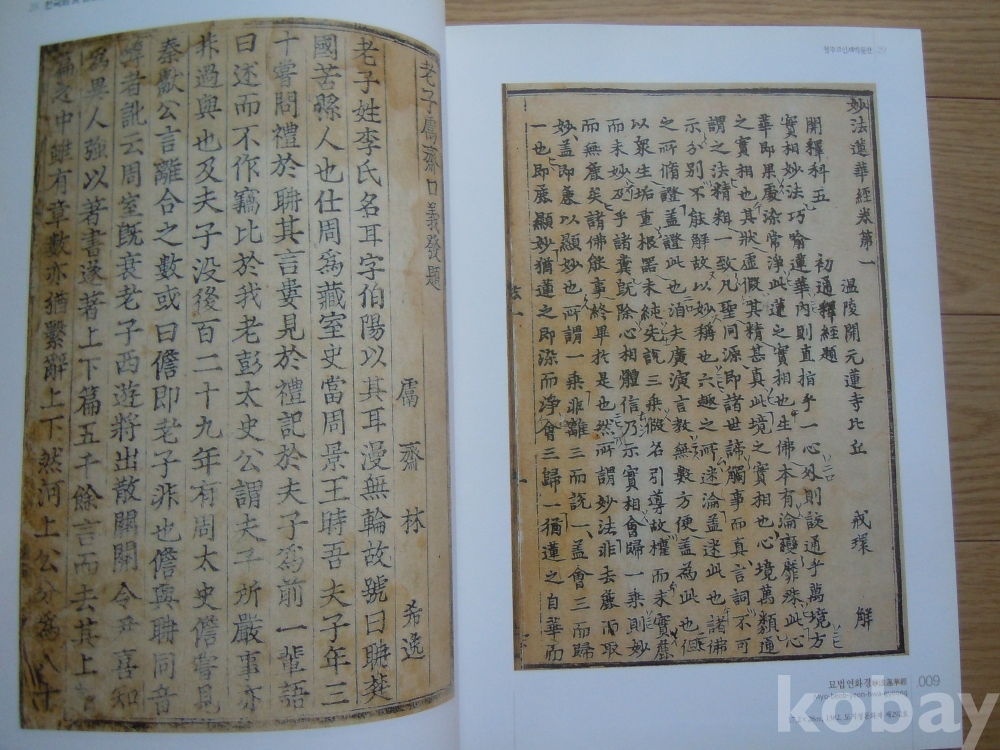 老子鬳齋口義發題
鬳齋 林 希逸
老子姓李氏名耳字伯陽以其耳漫無輪故號曰耼楚
國苦縣人也仕周爲藏室史當周景王時吾夫子年三
十嘗問禮於耼其言屢見於禮記於夫子爲前一輩語
曰述而不作竊比於我老彭太史公謂夫子所嚴事亦
非過與也及夫子没後百二十九年有周太史儋甞見
秦獻公言離合之數或曰儋即老子非也儋與耼同音
傳者訛云周室旣衰老子西遊將出散關關令尹喜知
爲異人強以著書遂著上下篇五千餘言而去其上
篇之中雖有章數亦猶繫辭上下然河上公分爲八十
청주고인쇄박물관 29
妙法蓮華經卷第一
温陵開元蓮寺比丘 戒環 解
開釋科五 初通釋經題
實相妙法巧喻蓮華內則直指乎一心外則該通乎萬境方
華即果處染常淨此蓮之實相也生佛本有淪變靡殊此心
之實相也其狀虛假其精甚真此境之實相也心境萬類通
謂之法精粗一致凡聖同源即諸世諦觸事而真言詞不可
示分別不能解故以妙稱也六趣之所迷淪盖迷此也諸佛
之所脩證盖證此也洎夫廣演言教無數方便盖為此也但
以衆生垢重根器未純先說三乘假名引導故權而未實麤
而未妙及乎諸糞旣除心相體信乃示實相會歸一乘則妙
而無麤矣諸佛能事終畢於是也然所謂妙法非去麤而取
妙盖即麤以顯妙也所謂一乘非離三而說一盖會三而歸
一也即麤顯妙猶蓮之即染而淨會三歸一猶蓮之自華而
묘법연화경 妙法蓮華經 009
kobay